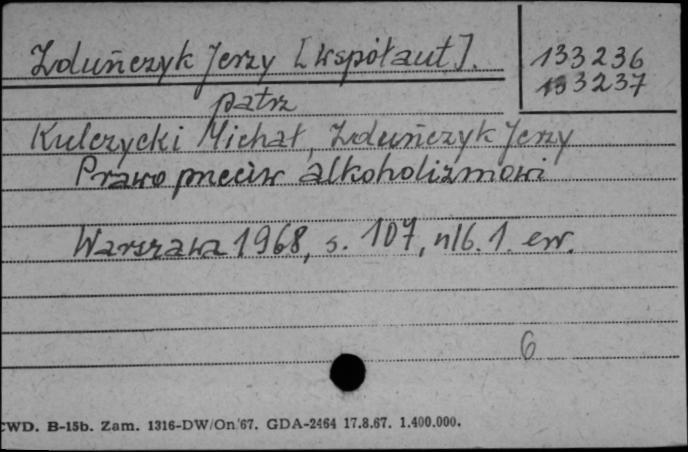 Zduńczyk Jerzy [współaut].
133236
133237
patrz
Kulczycki Michał, Zduńczyk Jerzy
Prawo przeciw alkoholizmowi
Warszawa 1968, s. 107, nlb. 1. err.
6
CWD. B-15b. Zam. 1316-DW/On/67. GDA-2464 17.8.67. 1.400.000.